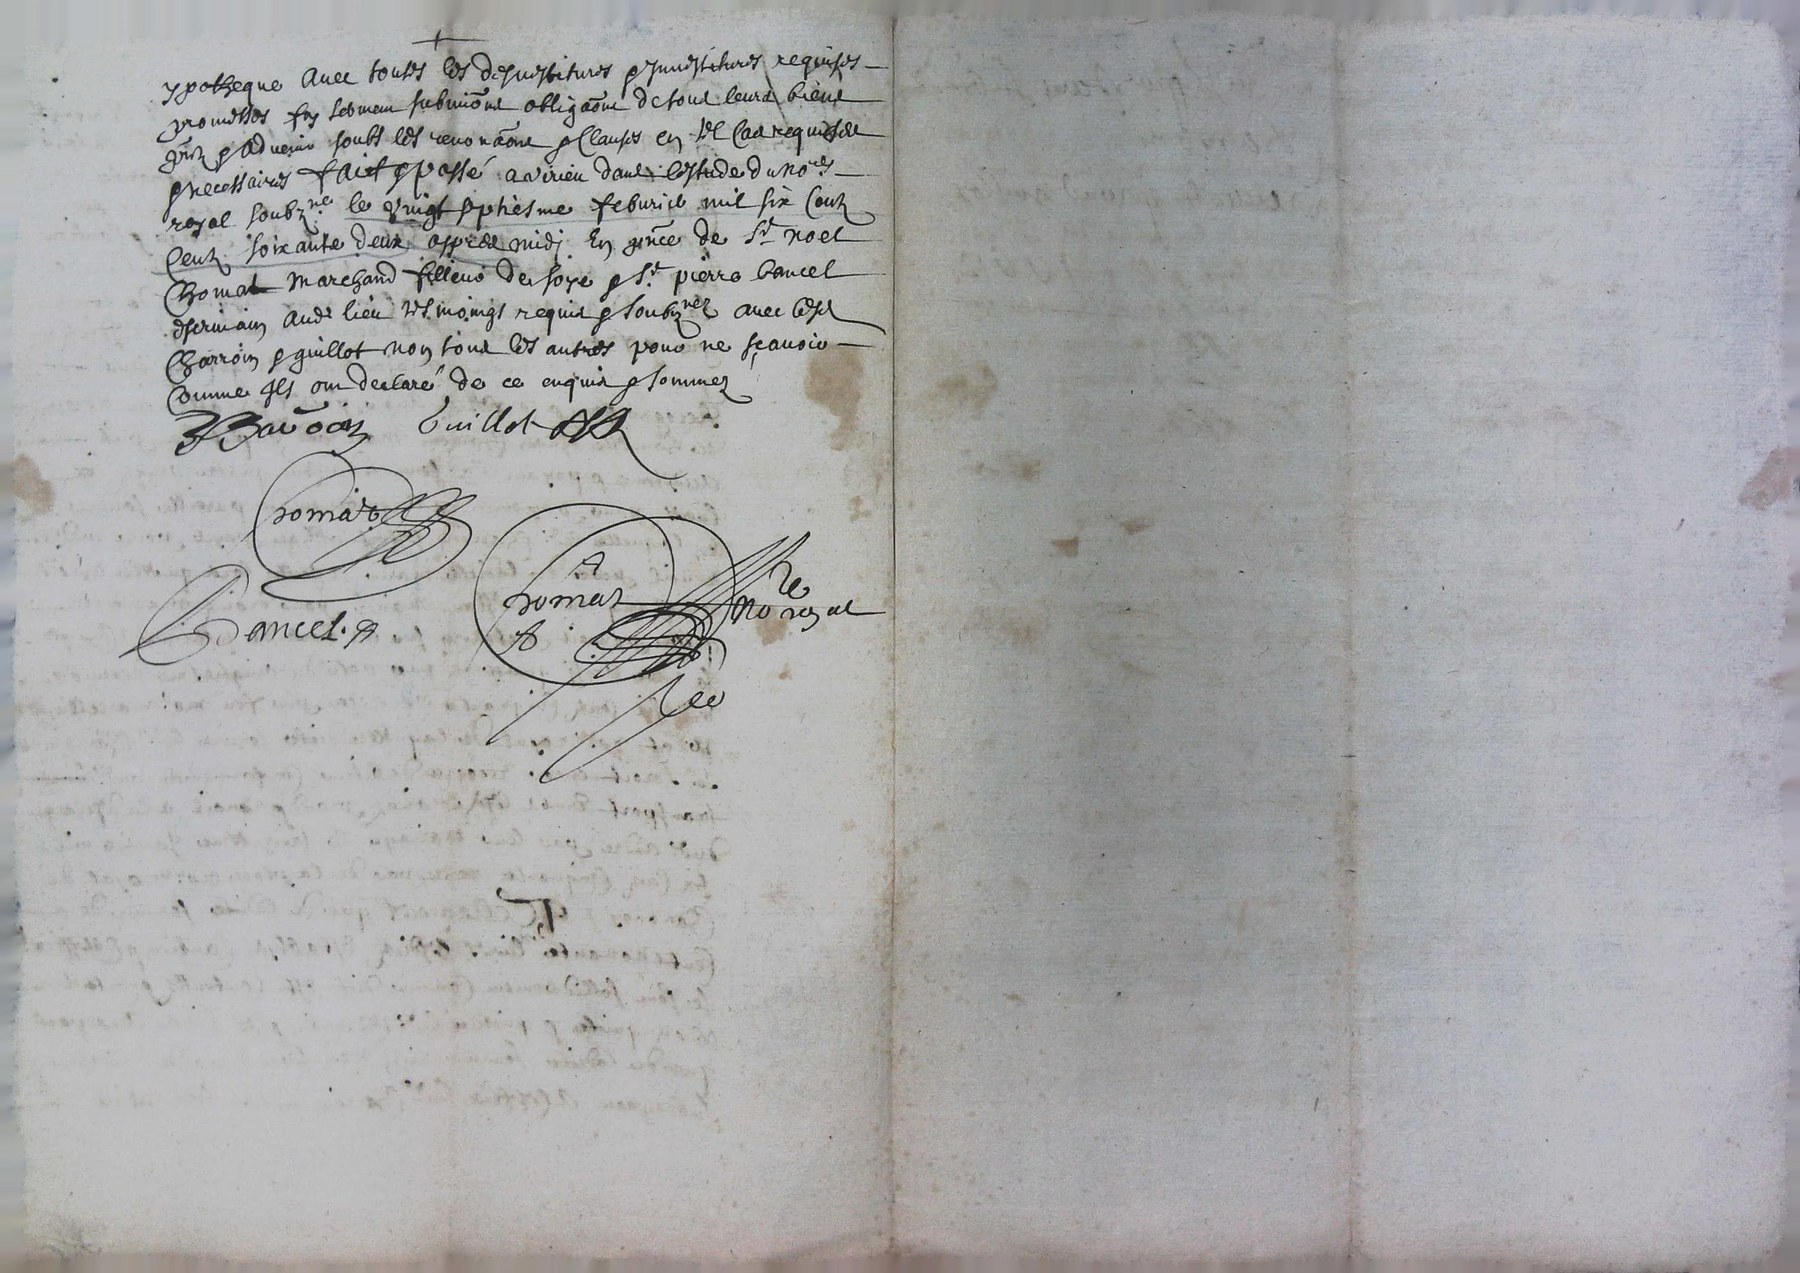 ypotheque avec toutes les desvestitures & investitures requises
promesses foy serment submiõns obligaõns de tous leurs biens
pñts & advenir soubz les renonçaõns & clauses en tel cas requises
& necessaires faict & passé a virieu dans l'estude du no.re
royal soubz.né le vingt sptiesme febvrier mil six centz
centz soixante deux appres midi En pñce de S.r noel
Chomat marchand filleur de soye & S.r pierre bancel
escrivain dud lieu tesmoingts requis & soubz.nez avec lesd
Charroin & guillot non tous les autres pour ne sçavoir
comme ils ont declaré de ce enquis & sommez
Guillot
Chomat
Bancel
Chomat
No royal